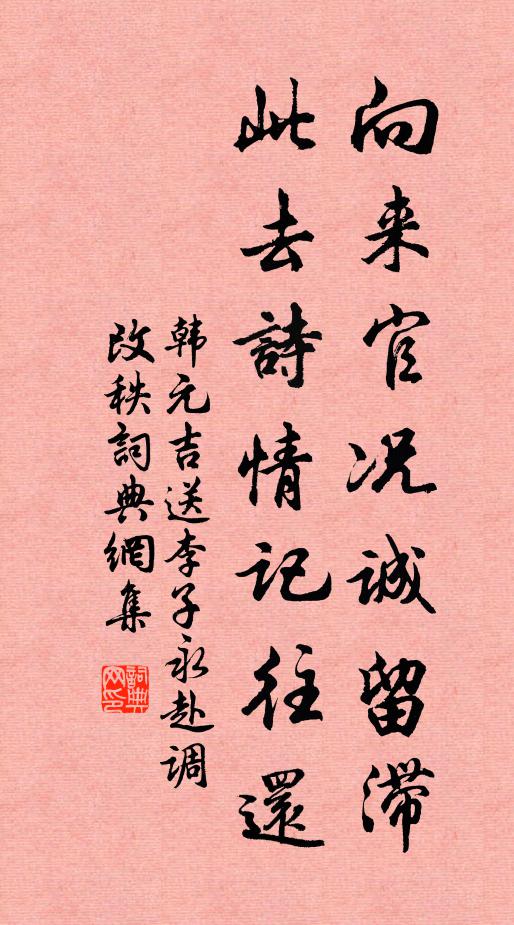 向来官况诚留滞
此去詩情记往還
韩元吉送李子永赴调
改秩詞典網集
詞典网印